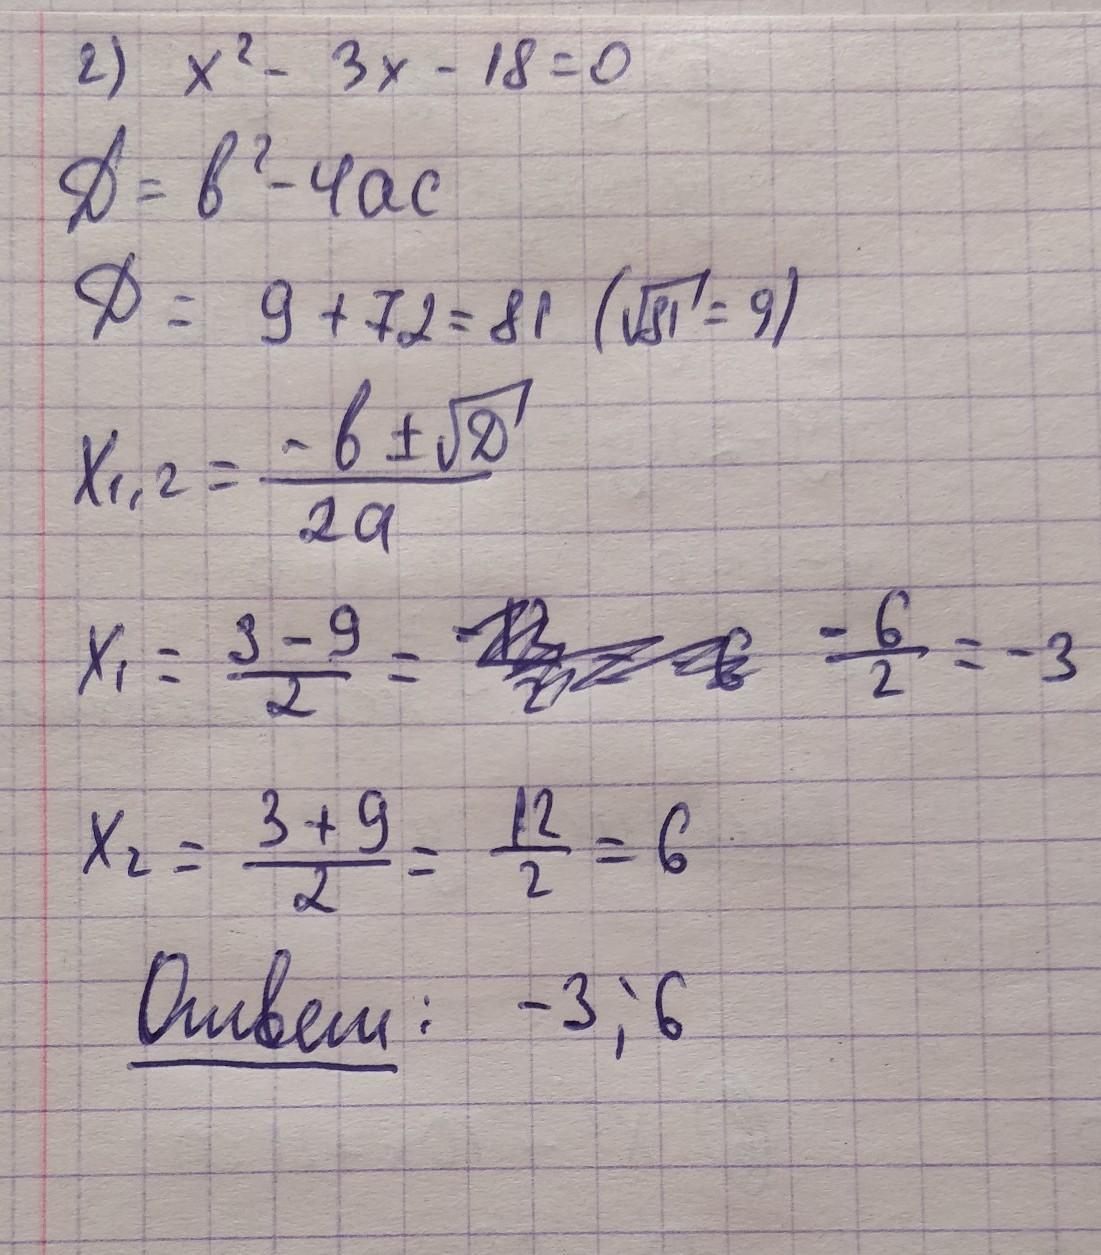 2) x² - 3x - 18 = 0
D = b² - 4ac
D = 9 + 72 = 81 (√81 = 9)
x₁,₂ = (-b ± √D) / 2a
x₁ = (3 - 9) / 2 = -6 / 2 = -3
x₂ = (3 + 9) / 2 = 12 / 2 = 6
Ответ: -3; 6